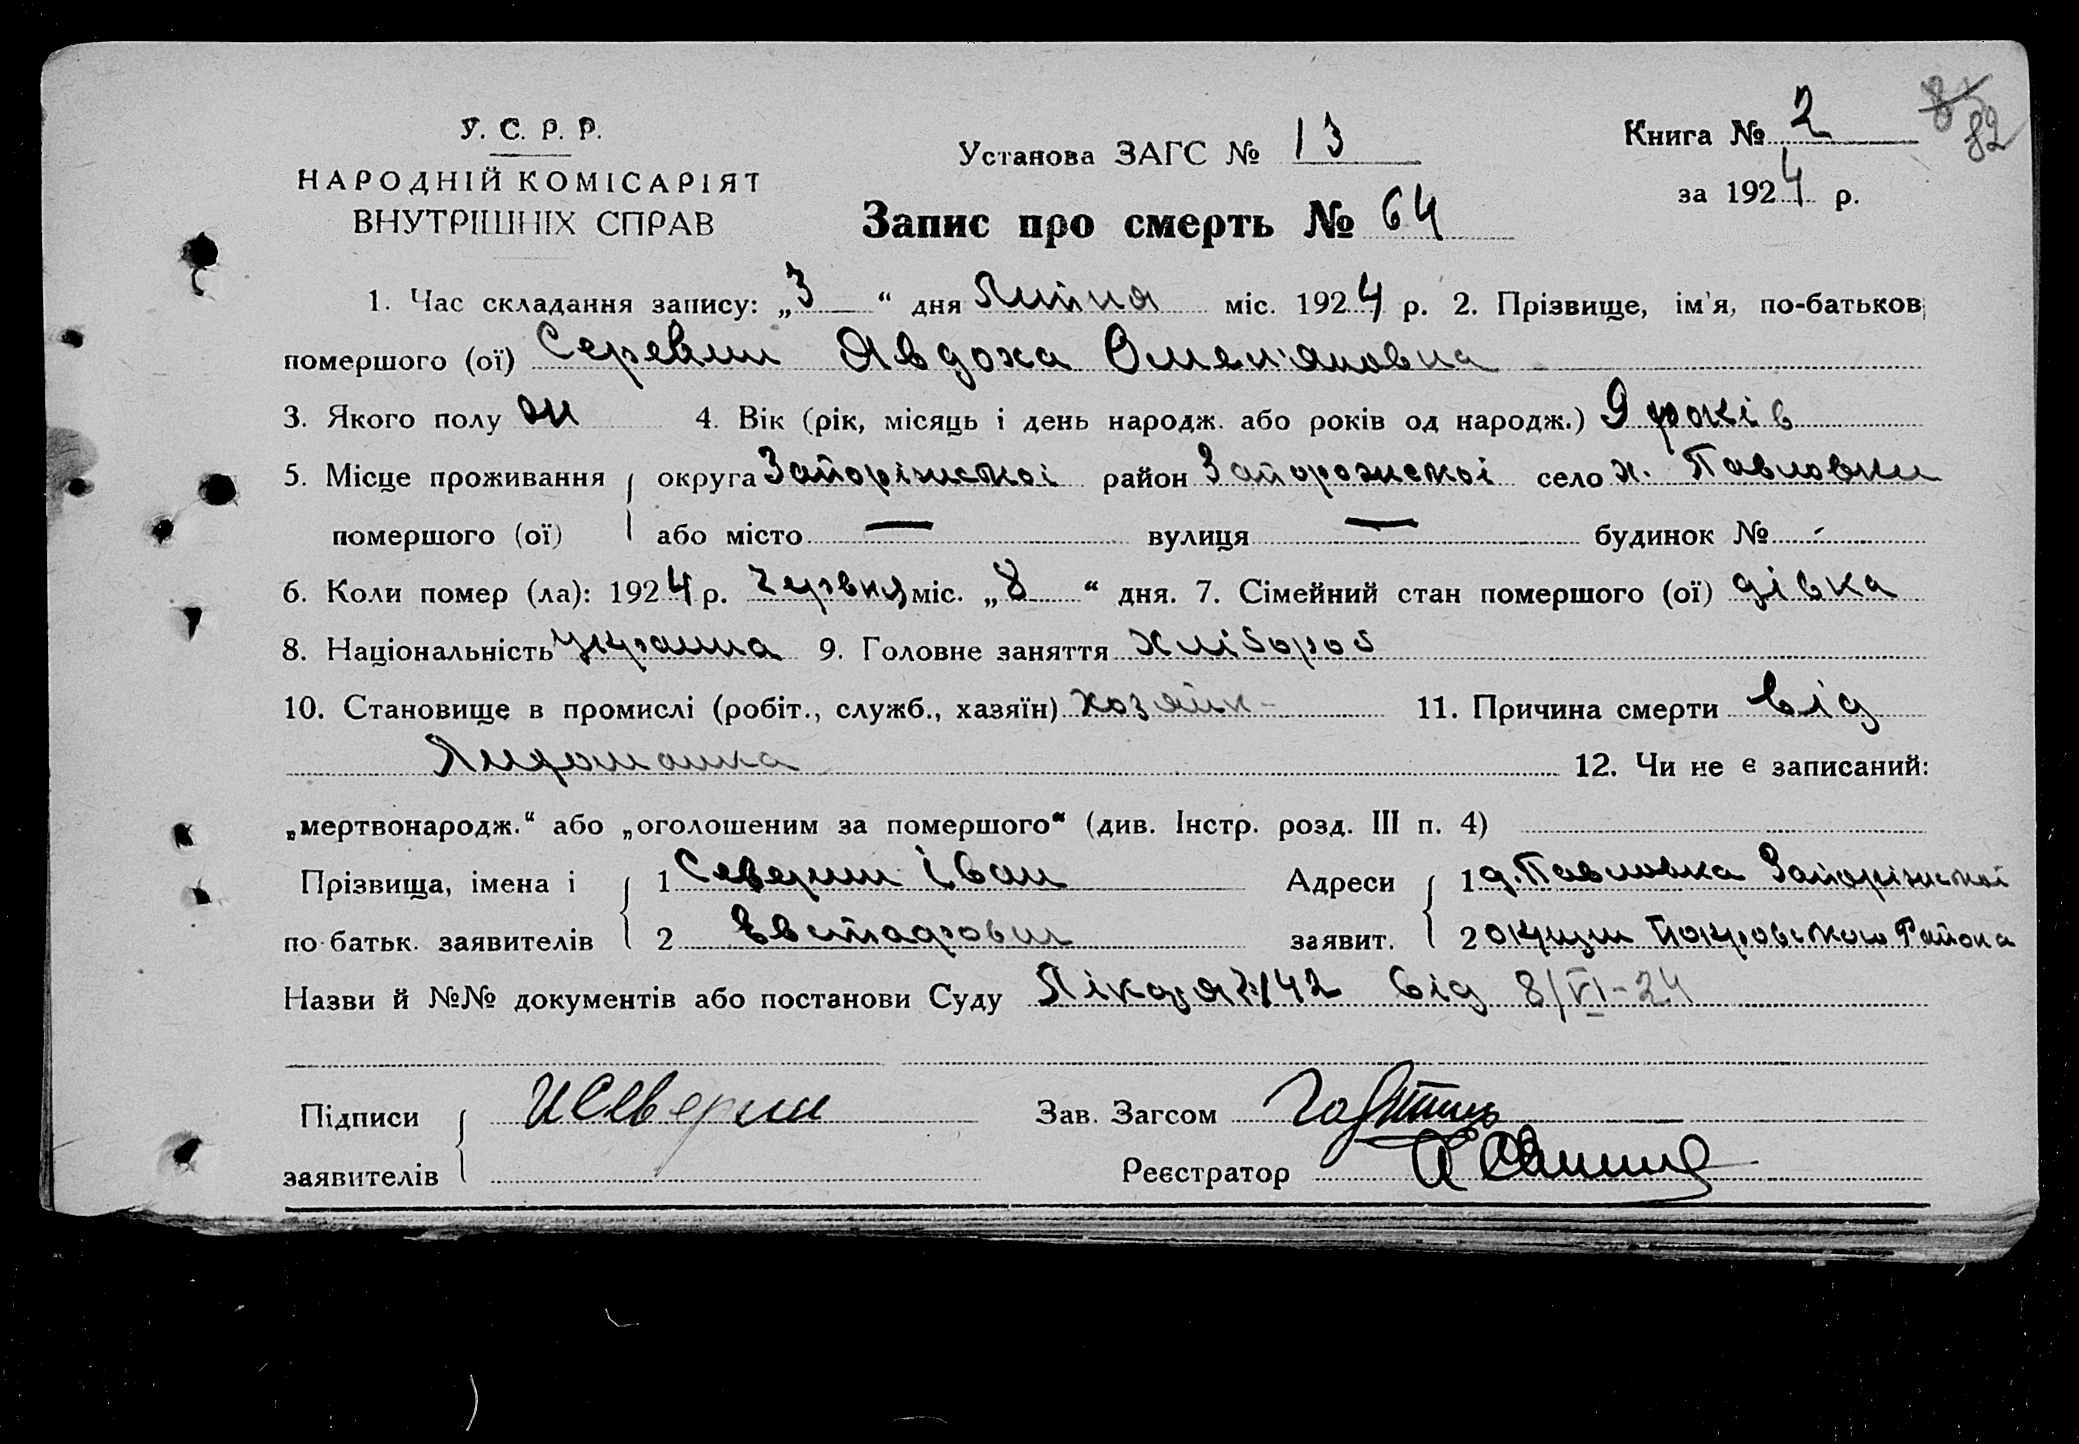 У. С. Р. Р.
НАРОДНІЙ КОМІСАРІЯТ
ВНУТРІШНІХ СПРАВ
Установа ЗАГС № 13
Книга № 2
82
за 1924 р.
Запис про смерть № 64
1. Час складання запису: „3“ дня Липня міс. 1924 р. 2. Прізвище, ім'я, по-батьков
помершого (ої) Явдоха Омел'яновна
3. Якого полу 4. Вік (рік, місяць і день народж. або років од народж.) 9 років
5. Місце проживання округа Запоріжської район Запорожскоі село х. Павловки
помершого (ої) або місто — вулиця — будинок № -
6. Коли помер (ла): 1924 р. Червня міс. „8“ дня. 7. Сімейний стан помершого (ої) дівка
8. Національність 9. Головне заняття хлібороб
10. Становище в промислі (робіт., служб., хазяїн) хозяйн- 11. Причина смерти від
12. Чи не є записаний:
„мертвонародж.“ або „оголошеним за помершого“ (див. Інстр. розд. III п. 4)
Прізвища, імена і 1 Северин Іван Адреси 1 д. Павловка Запоріжської
по-батьк. заявителів 2 Евстафович заявит. 2 округи Покровського Района
Назви й №№ документів або постанови Суду 142 від 8/VI-24
Підписи И Северин Зав. Загсом
заявителів Реєстратор